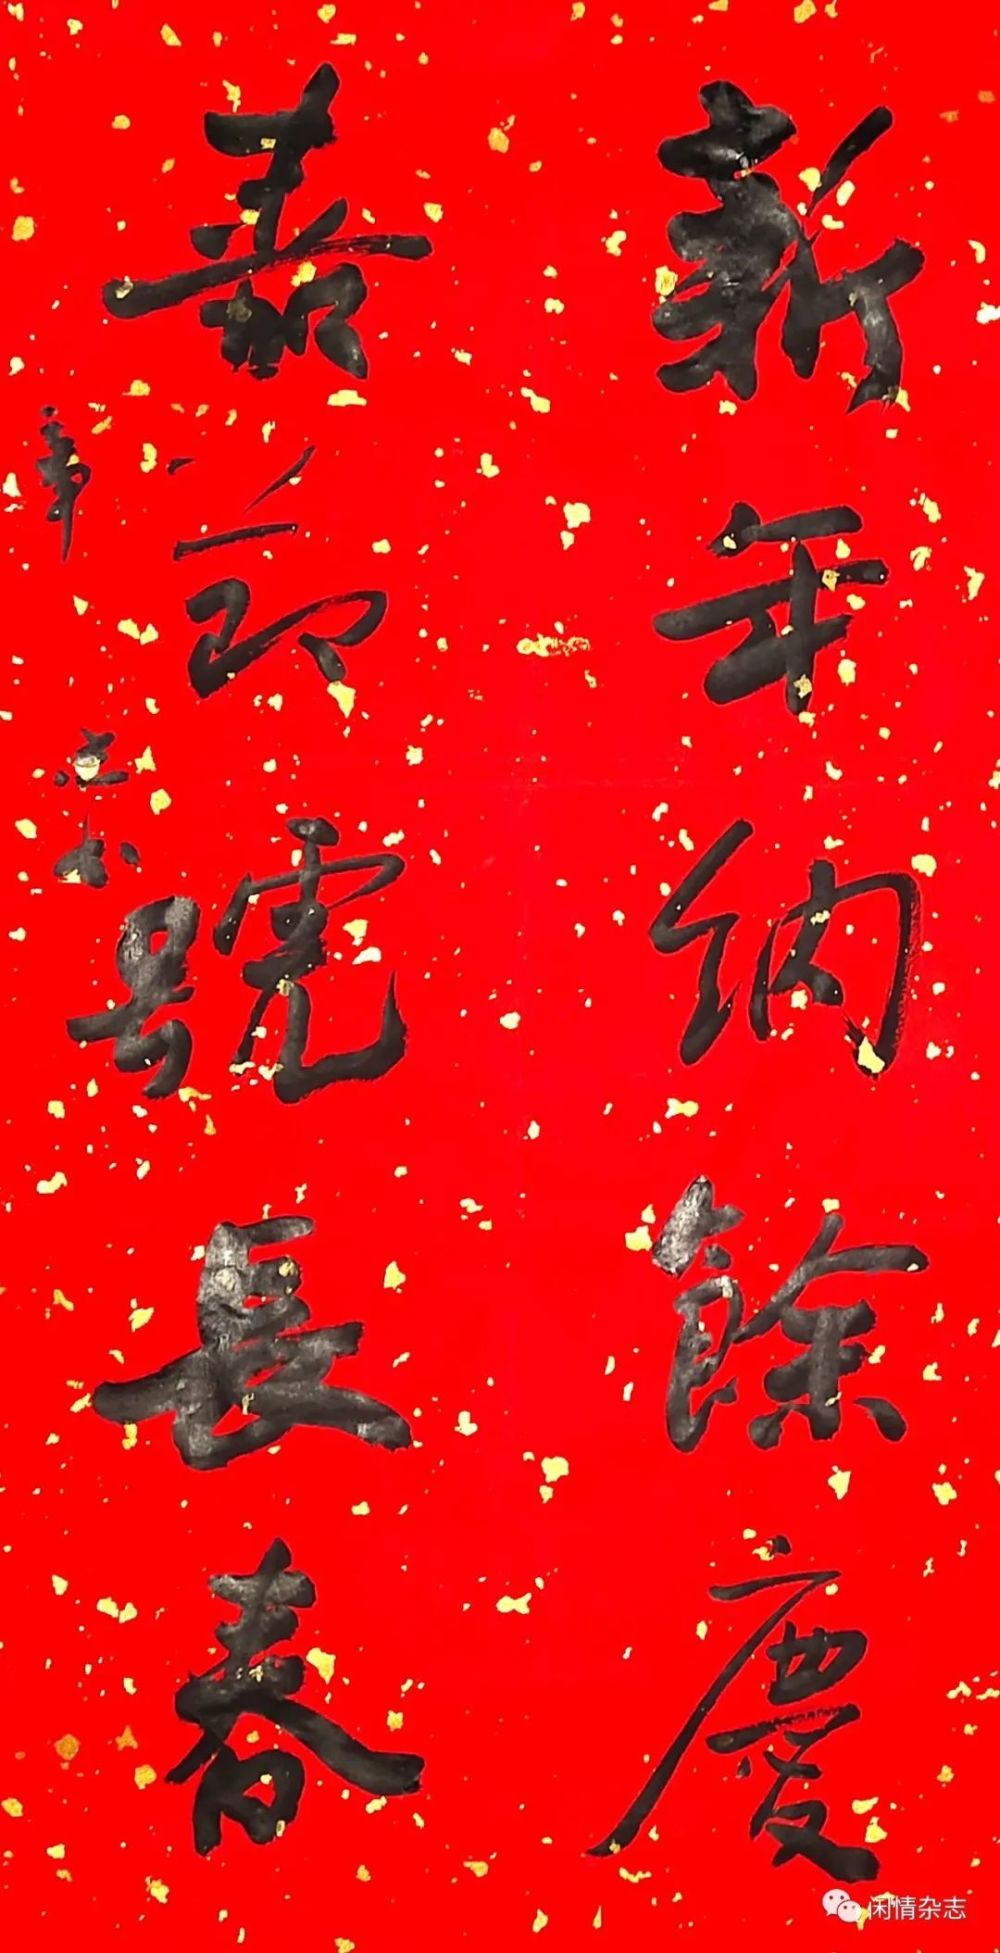 新年納餘慶
嘉節號長春
闲情杂志